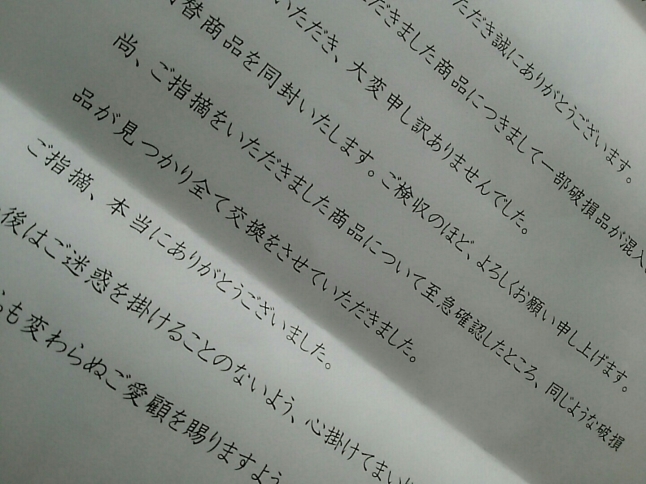 ただき誠にありがとうございます。
だきました商品につきまして一部破損品が混入
いただき、大変申し訳ありませんでした。
替商品を同封いたします。ご検収のほど、よろしくお願い申し上げます。
尚、ご指摘をいただきました商品について至急確認したところ、同じような破損
品が見つかり全て交換をさせていただきました。
ご指摘、本当にありがとうございました。
後はご迷惑を掛けることのないよう、心掛けてまい
も変わらぬご愛顧を賜りますよう